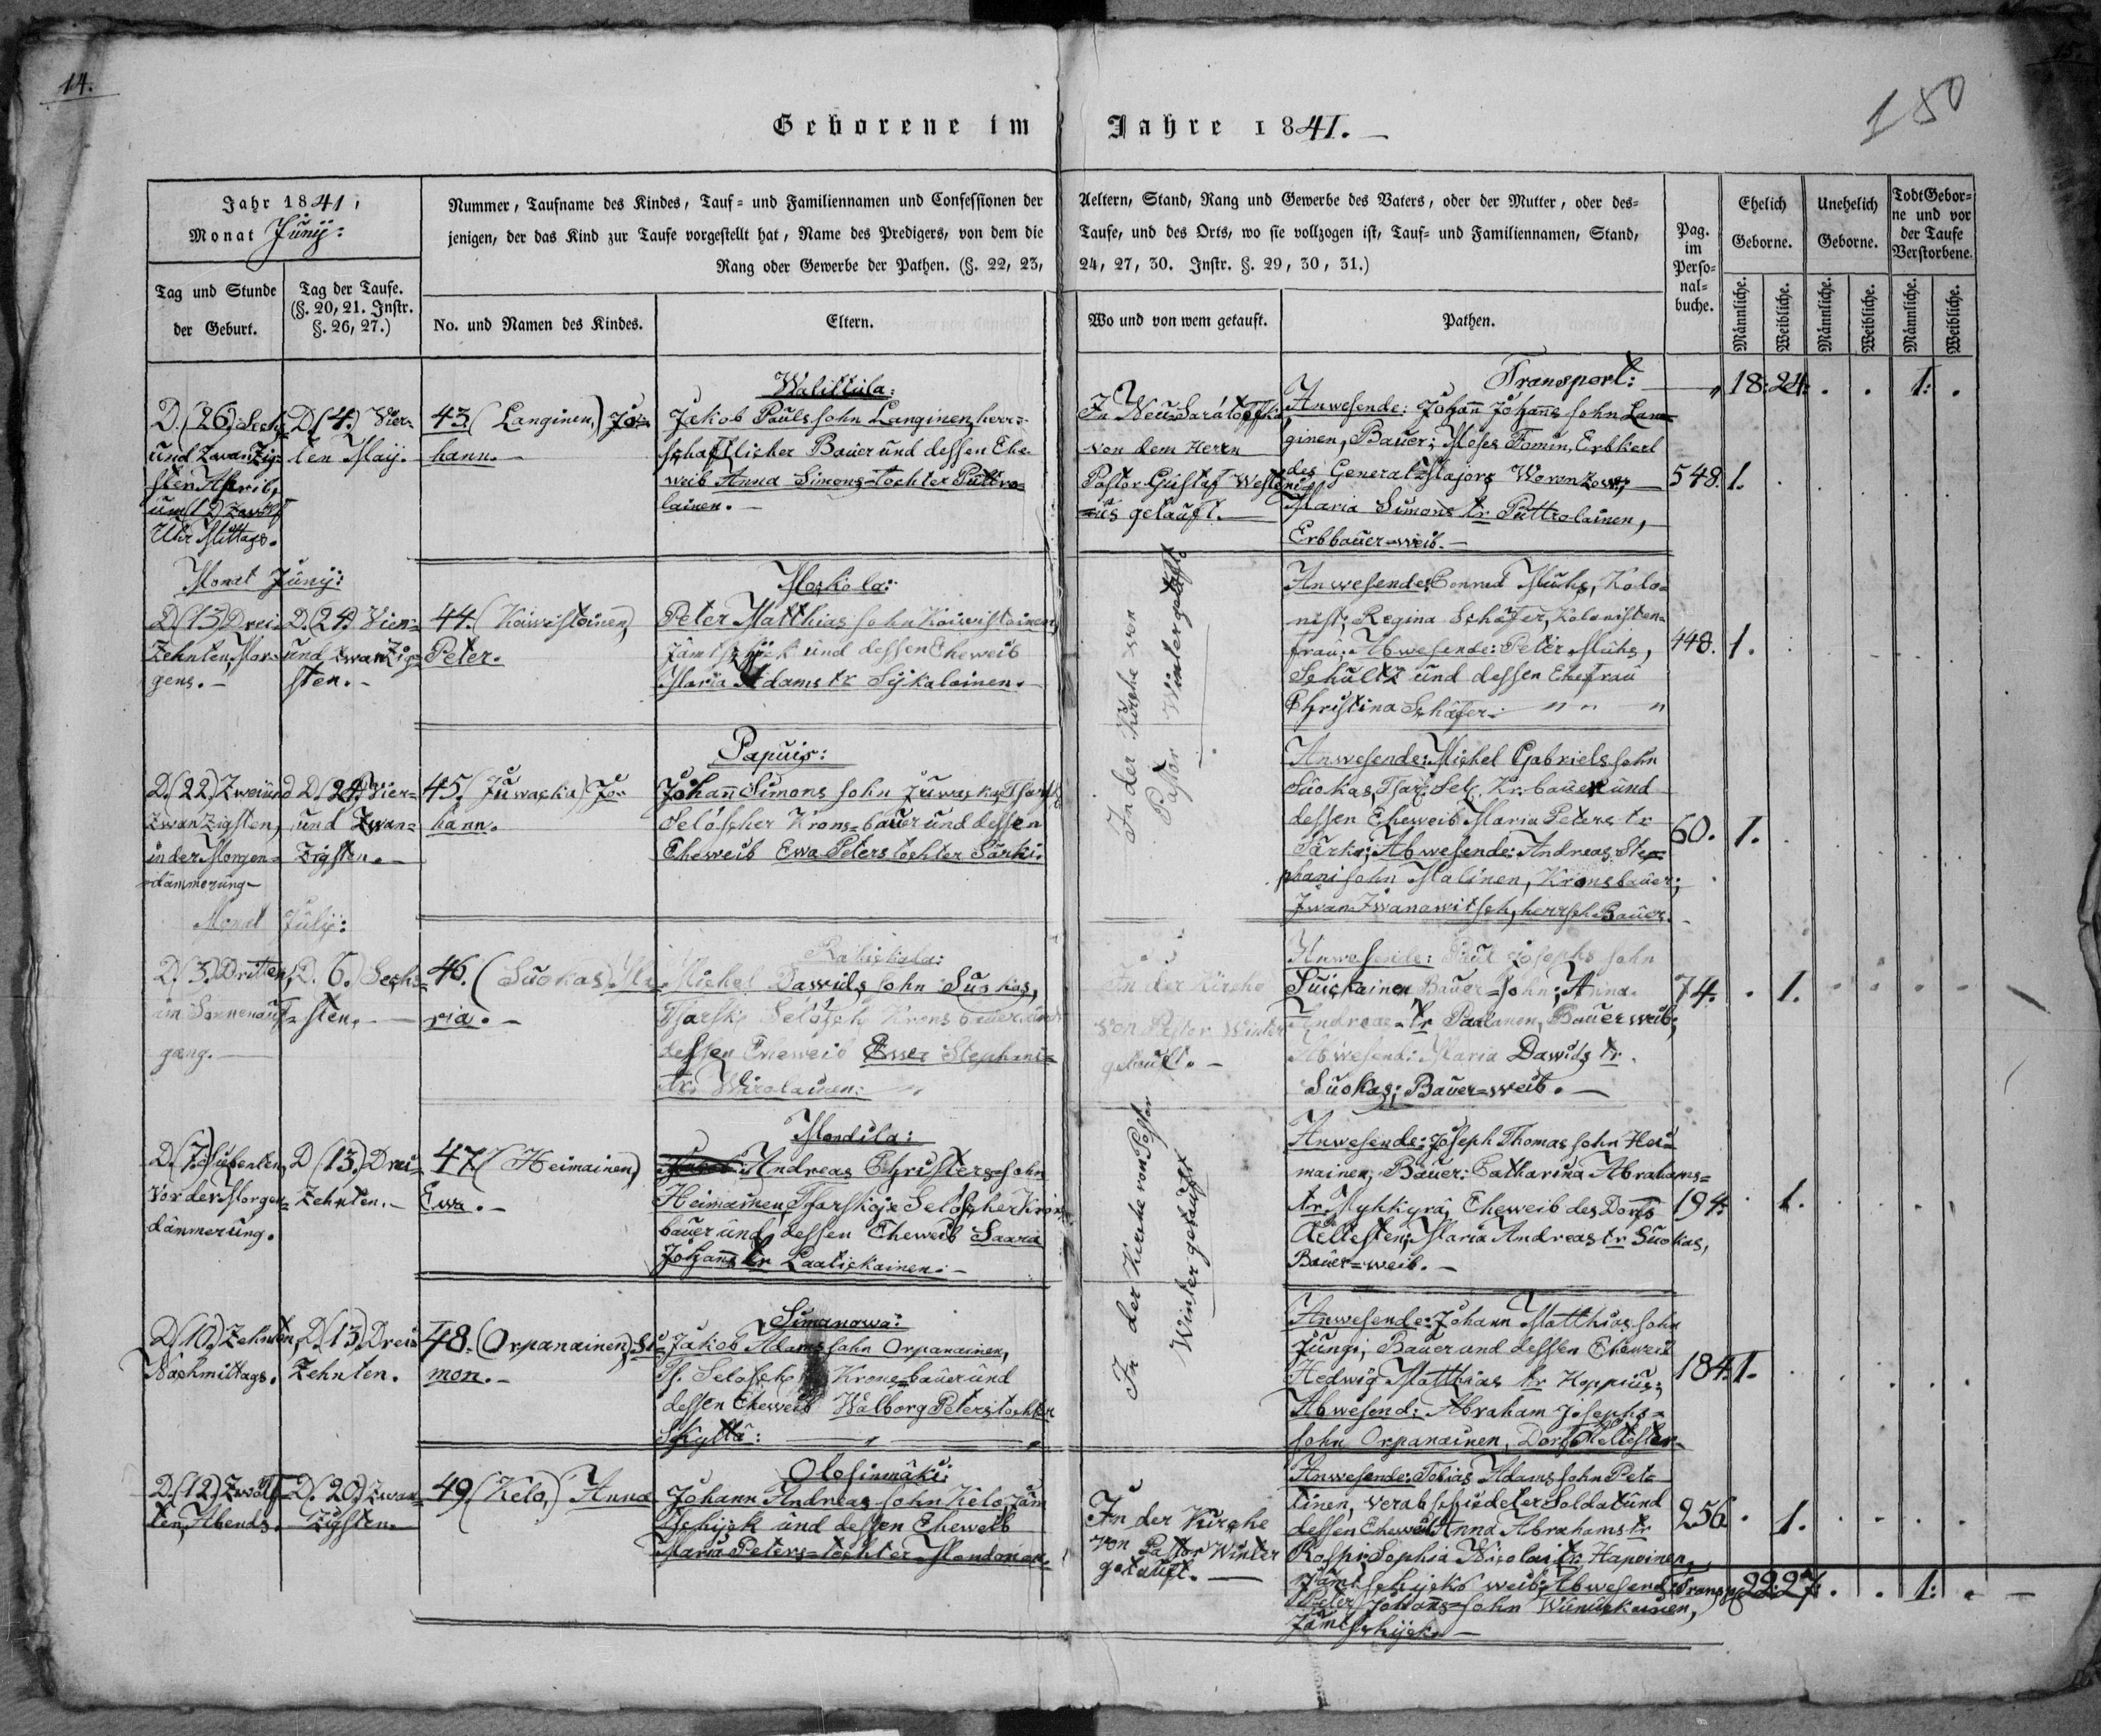 14.
15.
180
Geborene im Jahre 1841.
Jahr 1841,
Monat Junij:
Nummer, Taufname des Kindes, Tauf- und Familiennamen und Confessionen der Aeltern, Stand, Rang und Gewerbe des Vaters, oder der Mutter, oder des-
jenigen, der das Kind zur Taufe vorgestellt hat, Name des Predigers, von dem die Taufe, und des Orts, wo sie vollzogen ist, Tauf- und Familiennamen, Stand,
Rang oder Gewerbe der Pathen. (§. 22, 23, 24, 27, 30. Instr. §. 29, 30, 31.)
Pag.
im
Perso-
nal-
buche.
Ehelich
Geborne.
Unehelich
Geborne.
Todt Gebor-
ne und vor
der Taufe
Verstorbene.
Tag und Stunde
der Geburt.
Tag der Taufe.
(§. 20, 21. Instr.
§. 26, 27.)
No. und Namen des Kindes.
Eltern.
Wo und von wem getauft.
Pathen.
Männliche.
Weibliche.
Männliche.
Weibliche.
Männliche.
Weibliche.
Transport: 18: 24. . . 1: .
D. (26) Sechs
und zwanzig-
sten April,
um (12) zwölf
Uhr Mittags.
D. (4.) Vier-
ten May.
43. (Langinen,) Jo-
hann.
Walittula:
Jakob Pauls sohn Langinen, herr-
schaftlicher Bauer und dessen Ehe-
weib Anna Simons-tochter Puttro-
lainen.
In Neu-Saratoffka
von dem Herrn
Pastor Gustaf Westeni-
us getauft.
Anwesende: Johann Johanns sohn Lan-
ginen, Bauer; Moses Fomin, Erbkerl
des General-Majors Woronzow;
Maria Simons tr Puttrolainen,
Erbbauer-weib.
548. 1.
Monat Junij:
D. (13) Drei-
zehnten, Mor-
gens.
D. (24) Vier-
und zwanzig-
sten.
44. (Kaiwistoinen,)
Peter.
Moskola:
Peter Matthias sohn Kaiwistoinen,
Jämtschick und dessen Eheweib
Maria Adams tr Sijkalainen.
In der Kirche von
Pastor Winter getauft
Anwesende: Conrad Muhs, Kolo-
nist; Regina Schäfer, Kolonisten-
frau; Abwesende: Peter Muhs,
Schultz und dessen Ehefrau
Christina Schäfer.
448. 1.
D. (22) Zweiund
zwanzigsten,
in der Morgen-
dämmerung
D. (24) Vier-
und Zwan-
zigsten.
45. (Juwaska) Jo-
hann.
Papuis:
Johann Simons sohn Juwaska, Tsarsko
Seloscher Krons-bauer und dessen
Eheweib Ewa Peters tochter Särki.
Anwesende: Michel Gabriels sohn
Suokas, Tsar. Sel. Kr. bauer und
dessen Eheweib Maria Peters tr
Särki; Abwesende: Andreas Ste-
phani sohn Malinen, Kronsbauer;
Iwan Iwanowitsch, herrsch. Bauer.
60. 1.
Monat Julij:
D. (3.) Dritten,
im Sonnenauf-
gang.
D. 6.) Sechs-
sten.
46. (Suokas) Ma-
ria.
Michel Dawids sohn Suokas,
Tsarsko Selosch. Krons bauer und
dessen Eheweib Ewa Stephani-
tr. Wirolainen.
In der Kirche
von Pastor Winter
getauft.
Anwesende: Paul Josephs sohn
Suikainen Bauer-sohn; Anna
Andreas-tr Paalanen, Bauerweib;
Abwesend: Maria Dawids tr.
Suokas; Bauer-weib.
74. 1.
D. (7.) Siebenten,
vor der Morgen-
dämmerung.
D. (13.) Drei-
zehnten.
47. (Heimainen,)
Ewa.
Mondila:
Andreas Christers sohn
Heimainen, Tsarskoje Seloscher Kron-
bauer und dessen Eheweib Saara
Johanns tr Laatickainen.
In der Kirche vom Pastor
Winter getauft
Anwesende: Joseph Thomas sohn Hei-
mainen, Bauer: Catharina Abrahams-
tr Myhkyrä, Eheweib des Dorfs
Aeltesten; Maria Andreas tr Suokas,
Bauer-weib.
194. 1.
D. (10.) Zehnten,
Nachmittags.
D. (13.) Drei-
zehnten.
48. (Orpanainen,) Si-
mon.
Simanowa:
Jakob Adams sohn Orpanainen,
Ts. Selosch. Krons-bauer und
dessen Eheweib Walborg Peters tochter
Skyttä:
Anwesende: Johann Matthias sohn
Jungi, Bauer und dessen Eheweib
Hedwig Matthias tr Hoppius;
Abwesend: Abraham Josephs-
sohn Orpanainen, Dorfs Aeltester.
184. 1.
D. (12.) Zwölf-
ten, Abends.
D. 20.) Zwan-
zigsten.
49. (Kelo,) Anna
Olosinmäki:
Johann Andreas sohn Kelo, Jäm
tschijck und dessen Eheweib
Maria Peters-tochter Mondonen.
In der Kirche
von Pastor Winter
getauft.
Anwesende: Tobias Adams sohn Pet-
tinen, verabschiedeter Soldat und
dessen Eheweib Anna Abrahams tr
Rospi; Sophia Nicolai tr. Hapoinen,
Jämtschijcks weib; Abwesend:
Peter Johanns-sohn
Jämtschijck.
256. 1.
Transp. 22: 27. . . 1: .